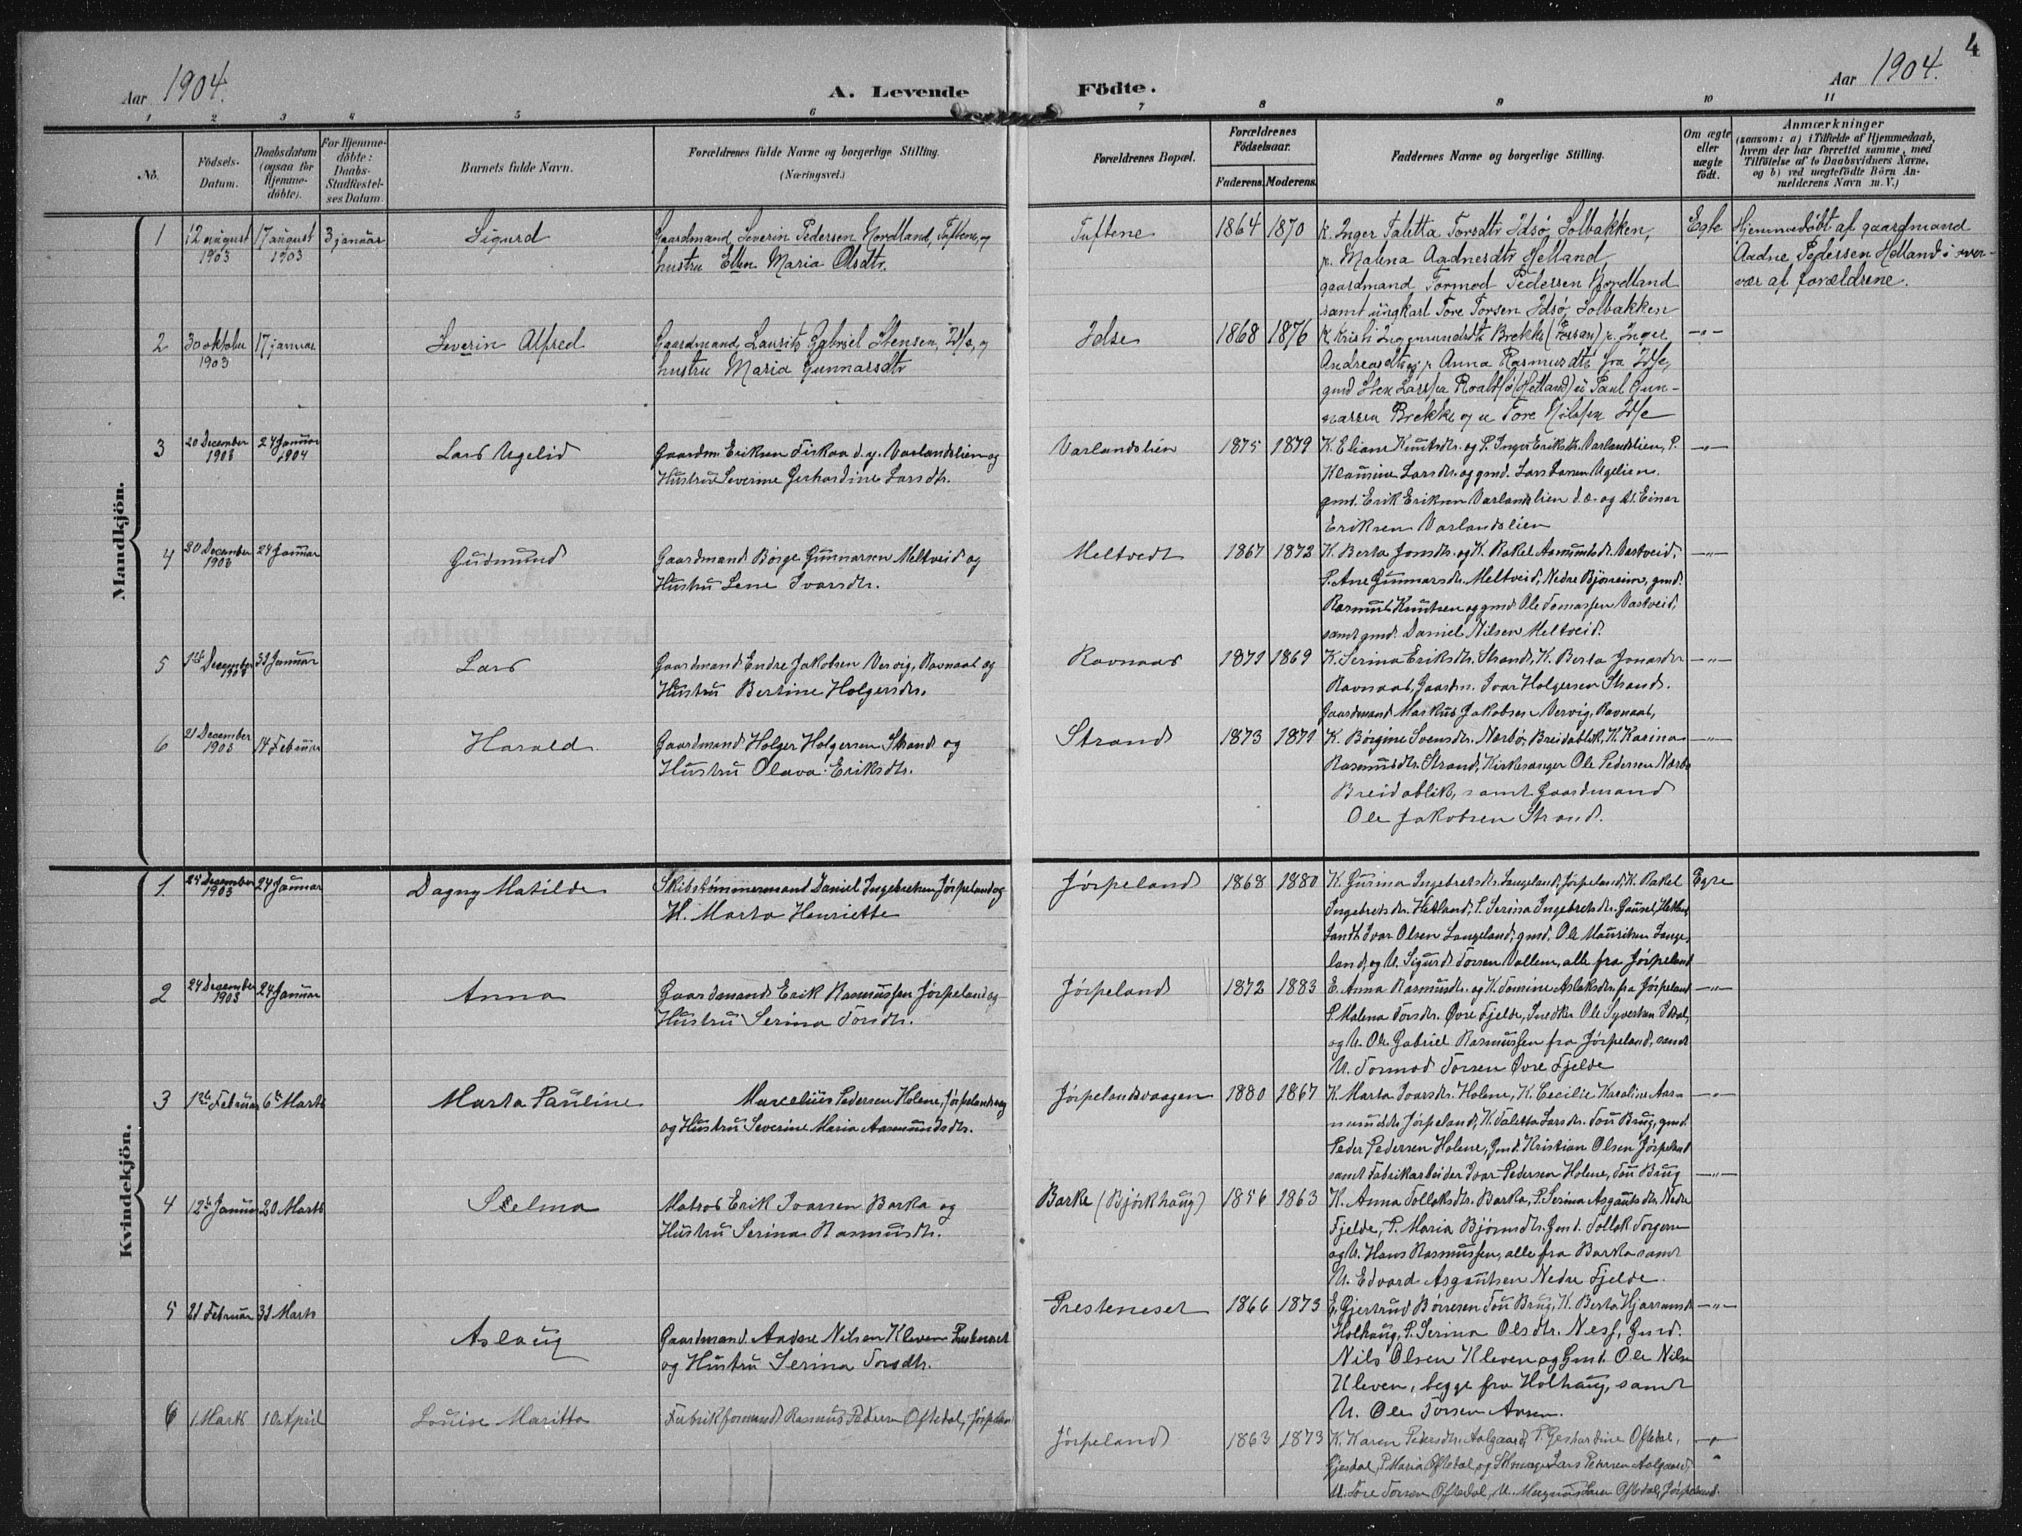 4
Aar 1904. A. Levende Födte. Aar 1904.
1 2 3 4 5 6 7 8 9 10 11
No.
Födsels-
Datum.
Daabsdatum
(ogsaa för
Hjemme-
döbte).
For Hjemme-
döbte:
Daabs-
Stadfæstel-
ses Datum.
Barnets fulde Navn.
Forældrenes fulde Navne og borgerlige Stilling.
(Næringsvei.)
Forældrenes Bopæl.
Forældrenes
Födselsaar.
Faderens. Moderens.
Faddernes Navne og borgerlige Stilling.
Om ægte
eller
uægte
födt.
Anmærkninger
(saasom: a) i Tilfælde af Hjemmedaab,
hvem der har forrettet samme, med
Tilföielse af to Daabsvidners Navne,
og b) ved uægtefödte Börn An-
melderens Navn m.V.)
Mandkjön.
1 12 august 1903 17 august 1903 3 januar Sigurd
Gaardmand Severin Pedersen Nordland, Tuftene, og
hustru Ellen Maria Olsdtr.
Tuftene 1864 1870
K. Inger Taletta Torsdtr Idsø, Solbakken,
p. Malena Aadnesdtr Helland,
gaardmand Tormod Pedersen Nordland
samt ungkarl Tore Torsen Idsø, Solbakken
Egte
Hjemmedøbt af gaardmand
Aadne Pedersen Helland i over-
vær af forældrene.
2 30 oktober 1903 17 januar Severin Alfred
Gaardmand Laurits Gabriel Stensen, Idse, og
hustru Maria Gunnarsdtr
Idse 1868 1876
K. Kristi Ingemundsdtr Brekke p. Inger
Andreasdtr og p. Anna Rasmusdtr fra Idse,
gmd Sten (Helland) u Paul Gun-
narsen Brekke og u Tore Nilssen Idse
3 20 December 1903 24 Januar 1904 Lars Ugelid
Gaardm. Eriksen Fiskaa d.y. Varlandslien og
Hustru Severine Gerhardine Larsdtr.
Varlandslien 1875 1879
K. Eliane Knutsdtr. og P. Inger Eriksdtr. Varlandslien, P.
Klausine Larsdtr. og gmd. Lars Larsen Ugelien.
gmd. Erik Eriksen Varlandslien d.æ. og U. Einar
Eriksen Varlandslien
4 20 December 1903 24 Januar Gudmund
Gaardmand Børge Gunnarsen Meltveid og
Hustru Lene Ivarsdtr.
Meltvedt 1867 1872
K. Berta Jonsdtr. og K. Rakel Aamundsdtr. Vastveid,
P. Ane Gunnarsdtr. Meltveid, Nedre Bjørheim, gmd.
Rasmus Knutsen og gmd Ole Tomassen Vastveid,
samt gmd. Daniel Nilsen Meltveid.
5 1ste December 1903 31 Januar Lars
Gaardmand Endre Jakobsen Vervig, Ravnaas og
Hustru Bertine Holgersdtr.
Ravnaas 1871 1869
K. Serina Eriksdtr. Strand, K. Berta Jonasdtr
Ravnaas, Gaardm. Ivar Holgersen Strand.
Gaardmand Markus Jakobsen Vervig, Ravnaas,
6 21 December 1903 14 Februar Harald
Gaardmand Holger Holgersen Strand og
Hustru Olava Eriksdtr.
Strand 1873 1871
K. Børgine Svensdtr. Narbø, Breidablik, K. Karina
Rasmusdtr. Strand, Kirkesanger Ole Pedersen Narbø
Breidablik, samt Gaardmand
Ole Jakobsen Strand.
Kvindekjön.
1. 24 Desember 1903 24 Januar Dagny Matilde
Skibstømmermand Daniel Ingebretsen, Jørpeland og
H. Marta Henriette
Jørpeland 1868 1880
K. Gurina Ingebretsdtr. Langeland, Jørpeland, K. Rakel
Ingebretsdtr. Hetland, P. Serina Ingebretsdtr. Gausel, Hetland
samt Ivar Olsen Langeland, gmd. Ole Mauritsen Lange-
land, og U. Sigurd Torsen Vallem, alle fra Jørpeland
Egte
2 24 Desember 1903 24 Januar Anna
Gaardmand Erik Rasmussen Jørpeland og
Hustru Serina Torsdtr.
Jørpeland 1872 1883
E. Anna Rasmusdtr. og K. Tomine Aslaksdtr. fra Jørpeland
P. Malena Torsdtr. Øvre Fjelde, Snedker Ole Syvertsen Idsal,
og U. Ole Gabriel Rasmussen fra Jørpeland, samt
U. Tormod Torsen Øvre Fjelde
3 1ste Februar 6te Marts Marta Pauline
Marcelius Pedersen Holene, Jørpelandsvaag
og Hustru Severine Maria Aasmundsdtr.
Jørpelandsvaagen 1880 1867
K. Marta Ivarsdtr. Holene, K. Cecilie Karoline Aas-
mundsdtr. Jørpeland, K. Taletta Larsdtr. Tou Brug, gmd.
Peder Pedersen Holene, Gmd. Kristian Olsen Jørpeland
samt Fabrikarbeider Ivar Pedersen Holene, Tou Brug
4 12te Januar 20 Marts Selma
Matros Erik Ivarsen Barka og
Hustru Serina Rasmusdtr.
Barke (Bjørkhaug) 1856 1863
K. Anna Tollaksdtr. Barka, P. Serina Asgautsdtr. Nedre
Fjelde, P. Maria Bjørnsdtr. Gmd. Tollak Torgersen
og U. Hans Rasmussen, alle fra Barka samt
U. Edvard Asgautsen Nedre Fjelde.
5 21 Februar 31 Marts Aslaug
Gaardmand Aadne Nilsen Kleven Prestneset
og Hustru Serina Torsdtr.
Presteneset 1866 1873
E. Gjertrud Børresen Tou Brug, K. Berta
Holhaug, P. Serina Olsdtr. Ness, Gmd.
Nils Olsen Kleven og Gmd. Ole Nilsen
Kleven, begge fra Holhaug, samt
U. Ole Torsen
6 1 Marts 10 April Louise Maritta
Fabrikformand Rasmus Pedersen Oftedal, Jørpeland
Jørpeland 1863 1873
K. Karen Pedersdtr. Aalgaard, P. Gerhardine Oftedal,
Gjesdal, P. Maria Oftedal, og Lars Pedersen Aalgaard,
U. Tore Torsen Oftedal, U. Magnus Larsen Oftedal, Jørpeland.